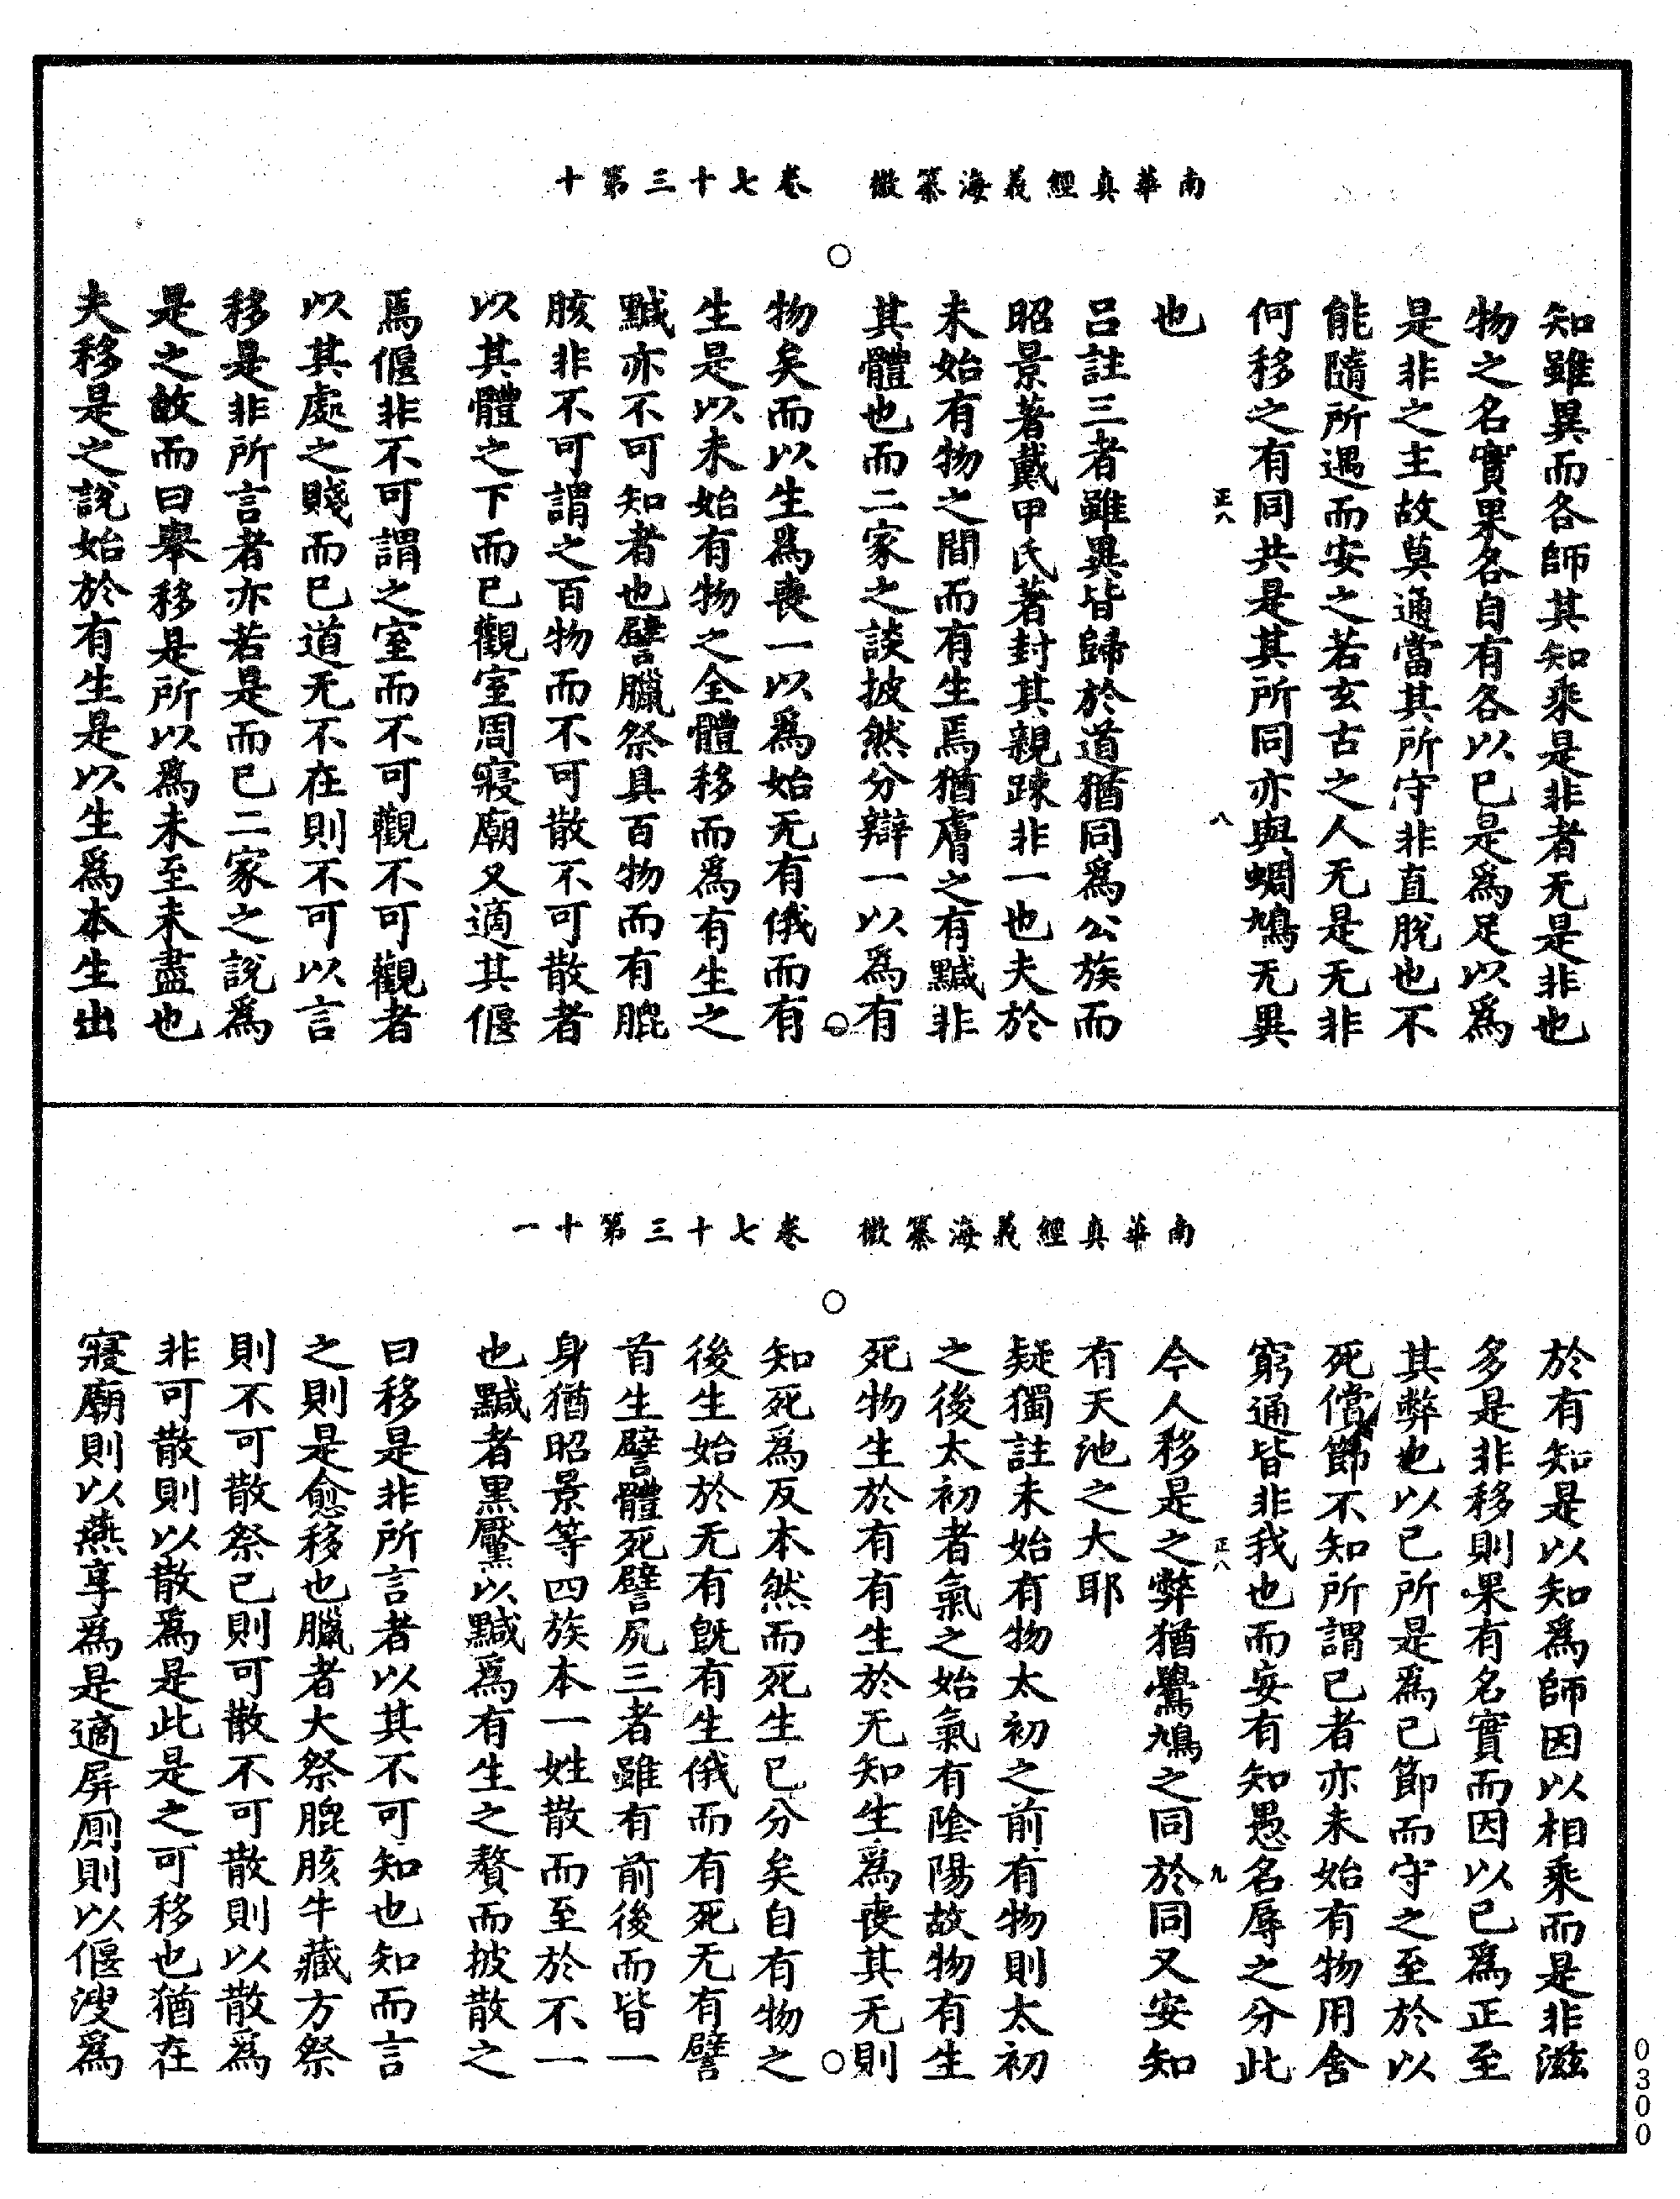 南華真經義海纂微　卷七十三第十
知雖異而各師其知乘是非者无是非也
物之名實果各自有各以己是爲足以爲
是非之主故莫通當其所守非直脫也不
能隨所遇而安之若玄古之人无是无非
何移之有同共是其所同亦與蜩鳩无異
正八　八
也
呂註三者雖異皆歸於道猶同爲公族而
昭景著戴甲氏著封其親踈非一也夫於
未始有物之間而有生焉猶膚之有黬非
其體也而二家之談披然分辯一以爲有
物矣而以生爲喪一以爲始无有俄而有
生是以未始有物之全體移而爲有生之
黬亦不可知者也譬臘祭具百物而有膍
胲非不可謂之百物而不可散不可散者
以其體之下而已觀室周寢廟又適其偃
焉偃非不可謂之室而不可觀不可觀者
以其處之賤而已道无不在則不可以言
移是非所言者亦若是而已二家之說爲
是之故而曰舉移是所以爲未至未盡也
夫移是之說始於有生是以生爲本生出
南華真經義海纂微　卷七十三第十一
於有知是以知爲師因以相乘而是非滋
多是非移則果有名實而因以己爲正至
其弊也以己所是爲己節而守之至於以
死償節不知所謂己者亦未始有物用舍
窮通皆非我也而妄有知愚名辱之分此
正八　九
今人移是之弊猶鷽鳩之同於同又安知
有天池之大耶
疑獨註未始有物太初之前有物則太初
之後太初者氣之始氣有陰陽故物有生
死物生於有有生於无知生爲喪其无則
知死爲反本然而死生已分矣自有物之
後生始於无有旣有生俄而有死无有譬
首生譬體死譬尻三者雖有前後而皆一
身猶昭景等四族本一姓散而至於不一
也黬者黑黶以黬爲有生之贅而披散之
曰移是非所言者以其不可知也知而言
之則是愈移也臘者大祭膍胲牛藏方祭
則不可散祭已則可散不可散則以散爲
非可散則以散爲是此是之可移也猶在
寢廟則以燕享爲是適屏廁則以偃溲爲
0300